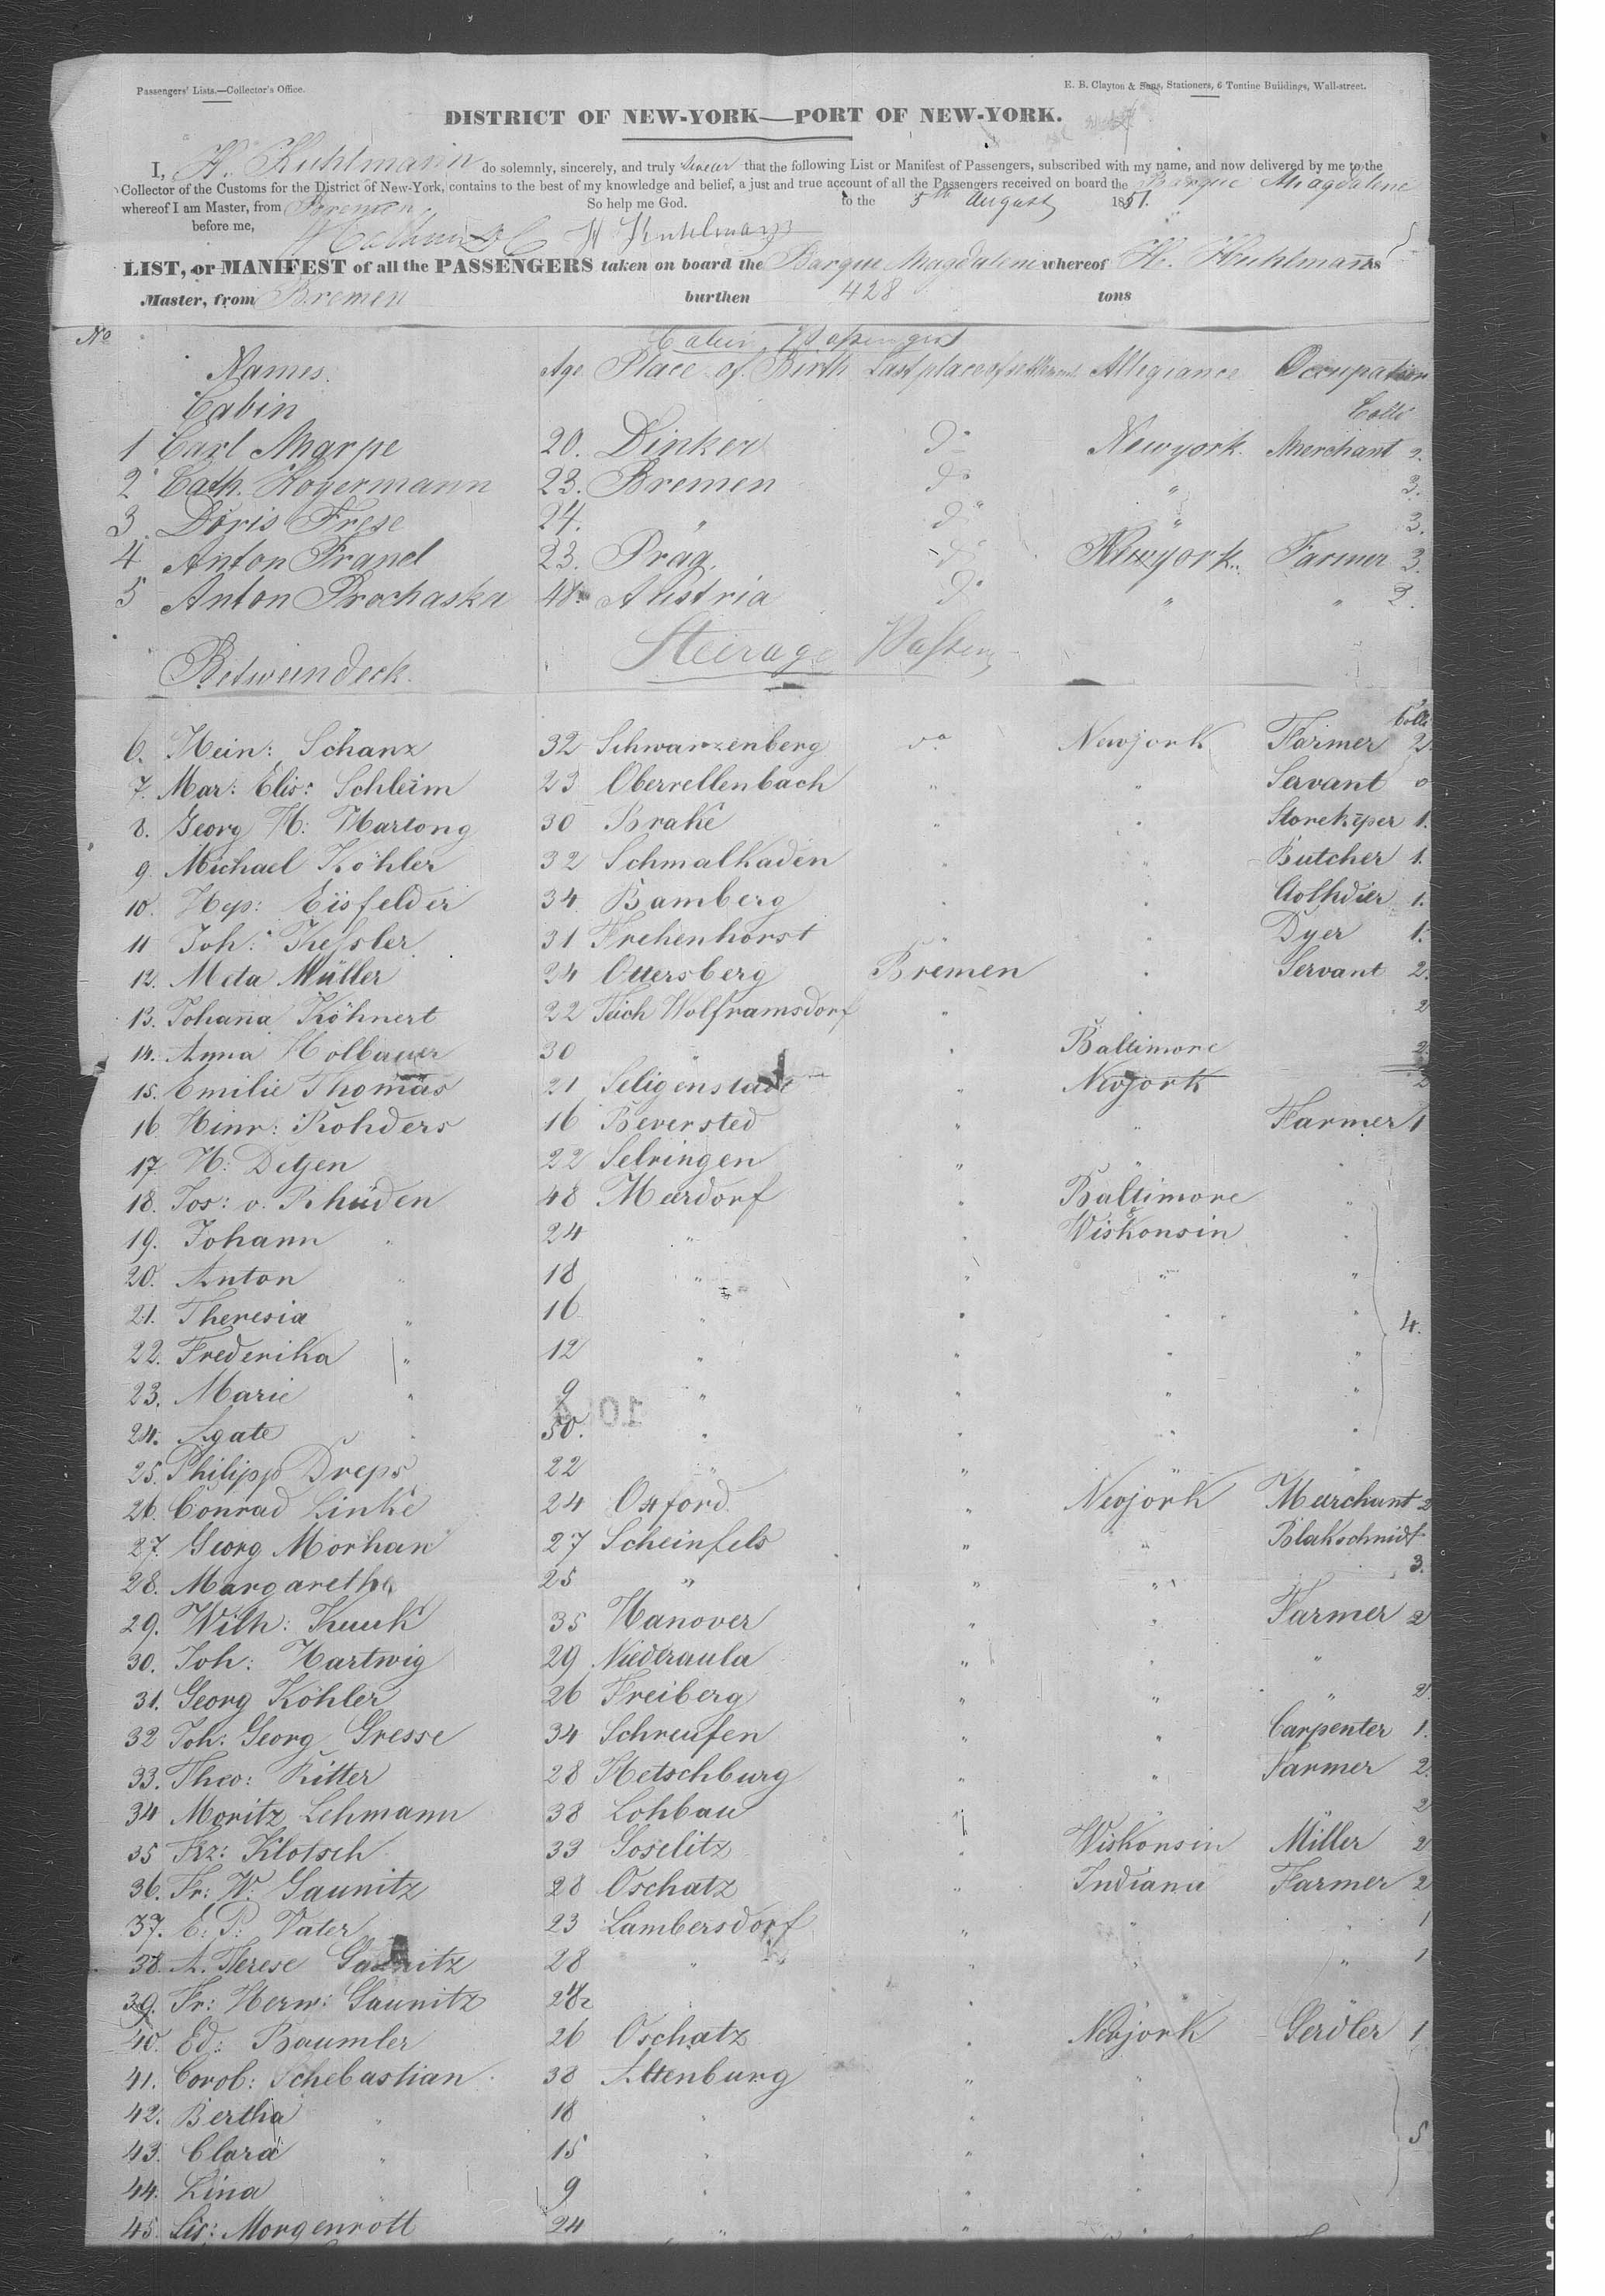 Passengers' Lists.—Collector's Office.
E. B. Clayton & Sons, Stationers, 6 Tontine Buildings, Wall-street.
DISTRICT OF NEW-YORK—PORT OF NEW-YORK.
I, H. Kuhlmann do solemnly, sincerely, and truly swear that the following List or Manifest of Passengers, subscribed with my name, and now delivered by me to the
Collector of the Customs for the District of New-York, contains to the best of my knowledge and belief, a just and true account of all the Passengers received on board the Barque Magdalene
whereof I am Master, from Bremen. So help me God. to the 5th August 1851.
before me, H Kuhlmann
LIST, or MANIFEST of all the PASSENGERS taken on board the Barque Magdalene whereof H. Kuhlmann is
Master, from Bremen burthen 428 tons
No
Cabin Passengers
Names. Age Place of Birth Last place of settlement Allegiance Occupation
Cabin Colli
1 Carl Marpe 20. Dinker do Newyork. Merchant 2.
2 Cath. Hoyermann 23. Bremen do " 3.
3. Doris Frese 24. " do " 3.
4 Anton Franel 23. Prag. do Newyork. Farmer 3.
5 Anton Prochaska 48. Austria do " " 2.
Steerage Passeng
Betweendeck.
Colli
6. Hein: Schanz 32 Schwarzenberg do Newjork Farmer 2.
7. Mar: Elis: Schleim 23 Oberrellenbach " " Servant 0
8. Georg H: Hartong 30 Brake " " Storekeper 1.
9. Michael Köhler 32 Schmalkaden " " Butcher 1.
10. Hep: Eisfelder 34 Bamberg " " Clothdier 1.
11 Joh: Kessler 31 Frekenhorst " " Dyer 1.
12. Meta Müller 24 Ottersberg Bremen " Servant 2.
13. Johanna Köhnert 22 Teich Wolframsdorf " " " 2
14. Anna Holbauer 30 " " Baltimore 2.
15. Emilie Thomas 21 Seligenstadt " Newjork 2
16. Hinr: Rohders 16 Beversted " " Farmer 1
17. H: Detjen 22 Selringen " " "
18. Jos: v. Rhüden 48 Mardorf " Baltimore "
19. Johann " 24 " " Wiskonsin "
20. Anton " 18 " " " "
21. Theresia " 16 " " " "
22. Frederika " 12 " " " " 4.
23. Marie " 9 " " " "
24. Agate " 50. " " " "
25. Philipp Dreps 22 " " " "
26. Conrad Linke 24 Oxford " Newjork Marchant 2
27. Georg Morhan 27 Scheinfels " " Blakschmidt
28. Margaretha 25 " " " 3.
29. Wilh: Kuuk 35 Hanover " " Farmer 2
30. Joh: Hartwig 29 Niederaula " " "
31. Georg Köhler 26 Freiberg " " " 2.
32 Joh: Georg Gresse 34 Schreufen " " Carpenter 1.
33. Theo: Ritter 28 Hetschburg " " Farmer 2.
34 Moritz Lehmann 38 Lohbau " 2
35 Frz: Klotsch 33 Goselitz " Wiskonsin Miller 2
36. Fr: W. Gaunitz 28 Oschatz " Indiana Farmer 2
37. E: P: Vater 23 Lambersdorf " " " 1
38. A. Therese Gaunitz 28 " " " " 1
39. Fr: Herm: Gaunitz " "
40. Ed: Baumler 26 Oschatz " Newjork Gerdler 1
41. Corol: Schebastian 38 Altenburg " "
42. Bertha " 18 " " "
43. Clara " 15 " " " 5
44. Lina " 9 " " "
45. Lis: Morgenrott 24 " "